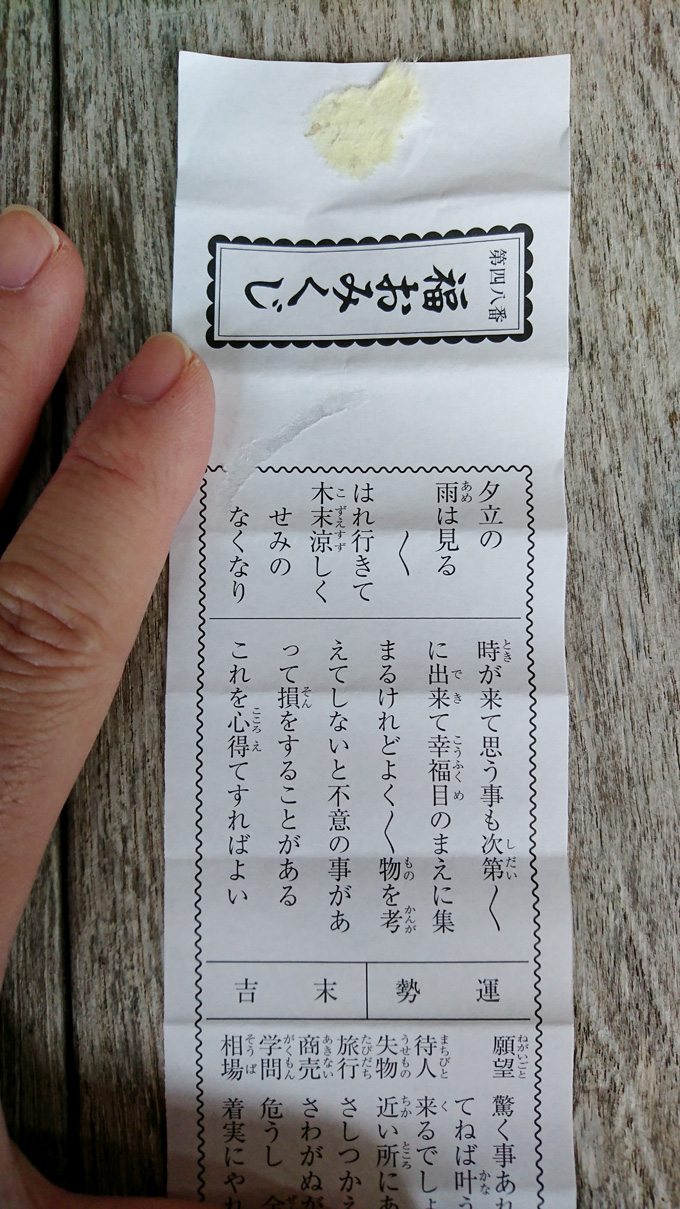 第四八番
福おみくじ
夕立の
雨は見る
〱
はれ行きて
木末涼しく
せみの
なくなり
時が来て思う事も次第〱
に出来て幸福目のまえに集
まるけれどよく〱物を考
えてしないと不意の事があ
って損をすることがある
これを心得てすればよい
運勢
末吉
願望 驚く事あれ
てねば叶う
待人 来るでしょ
失物 近い所にあ
旅行 さしつかえ
商売 さわがぬが
学問 危うし
相場 着実にやれ